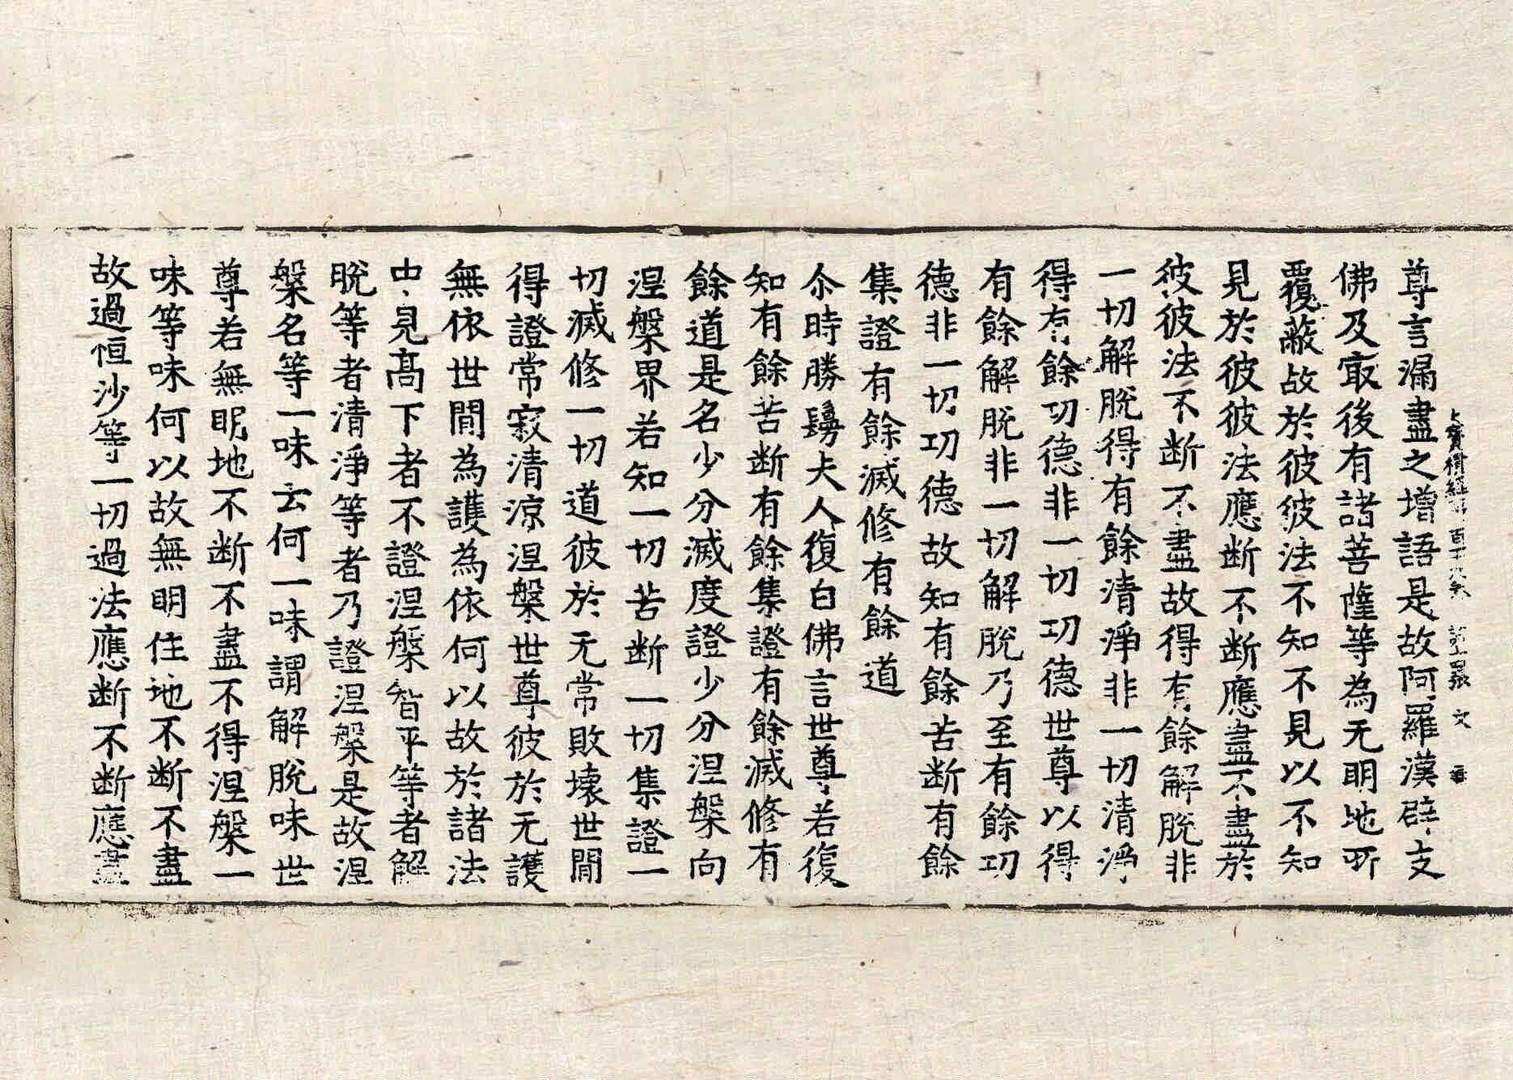 尊言漏盡之增語是故阿羅漢辟支
大寶積經 百十九 文
佛及㝡後有諸菩薩等為无明地所
覆蔽故於彼彼法不知不見以不知
見於彼彼法應断不断應盡不盡於
彼彼法不断不盡故得有餘解脫非
一切解脫得有餘清淨非一切清淨
得有餘功德非一切功德世尊以得
有餘解脫非一切解脫乃至有餘功
德非一切功德故知有餘苦断有餘
集證有餘滅修有餘道
尒時勝鬘夫人復白佛言世尊若復
知有餘苦断有餘集證有餘滅修有
餘道是名少分滅度證少分涅槃向
涅槃界若知一切苦断一切集證一
切滅修一切道彼於无常敗壞世間
得證常寂清涼涅槃世尊彼於无護
無依世間為護為依何以故於諸法
中見高下者不證涅槃智平等者解
脫等者清淨等者乃證涅槃是故涅
槃名等一味云何一味謂解脫味世
尊若無明地不断不盡不得涅槃一
味等味何以故無明住地不断不盡
故過恒沙等一切過法應断不断應盡